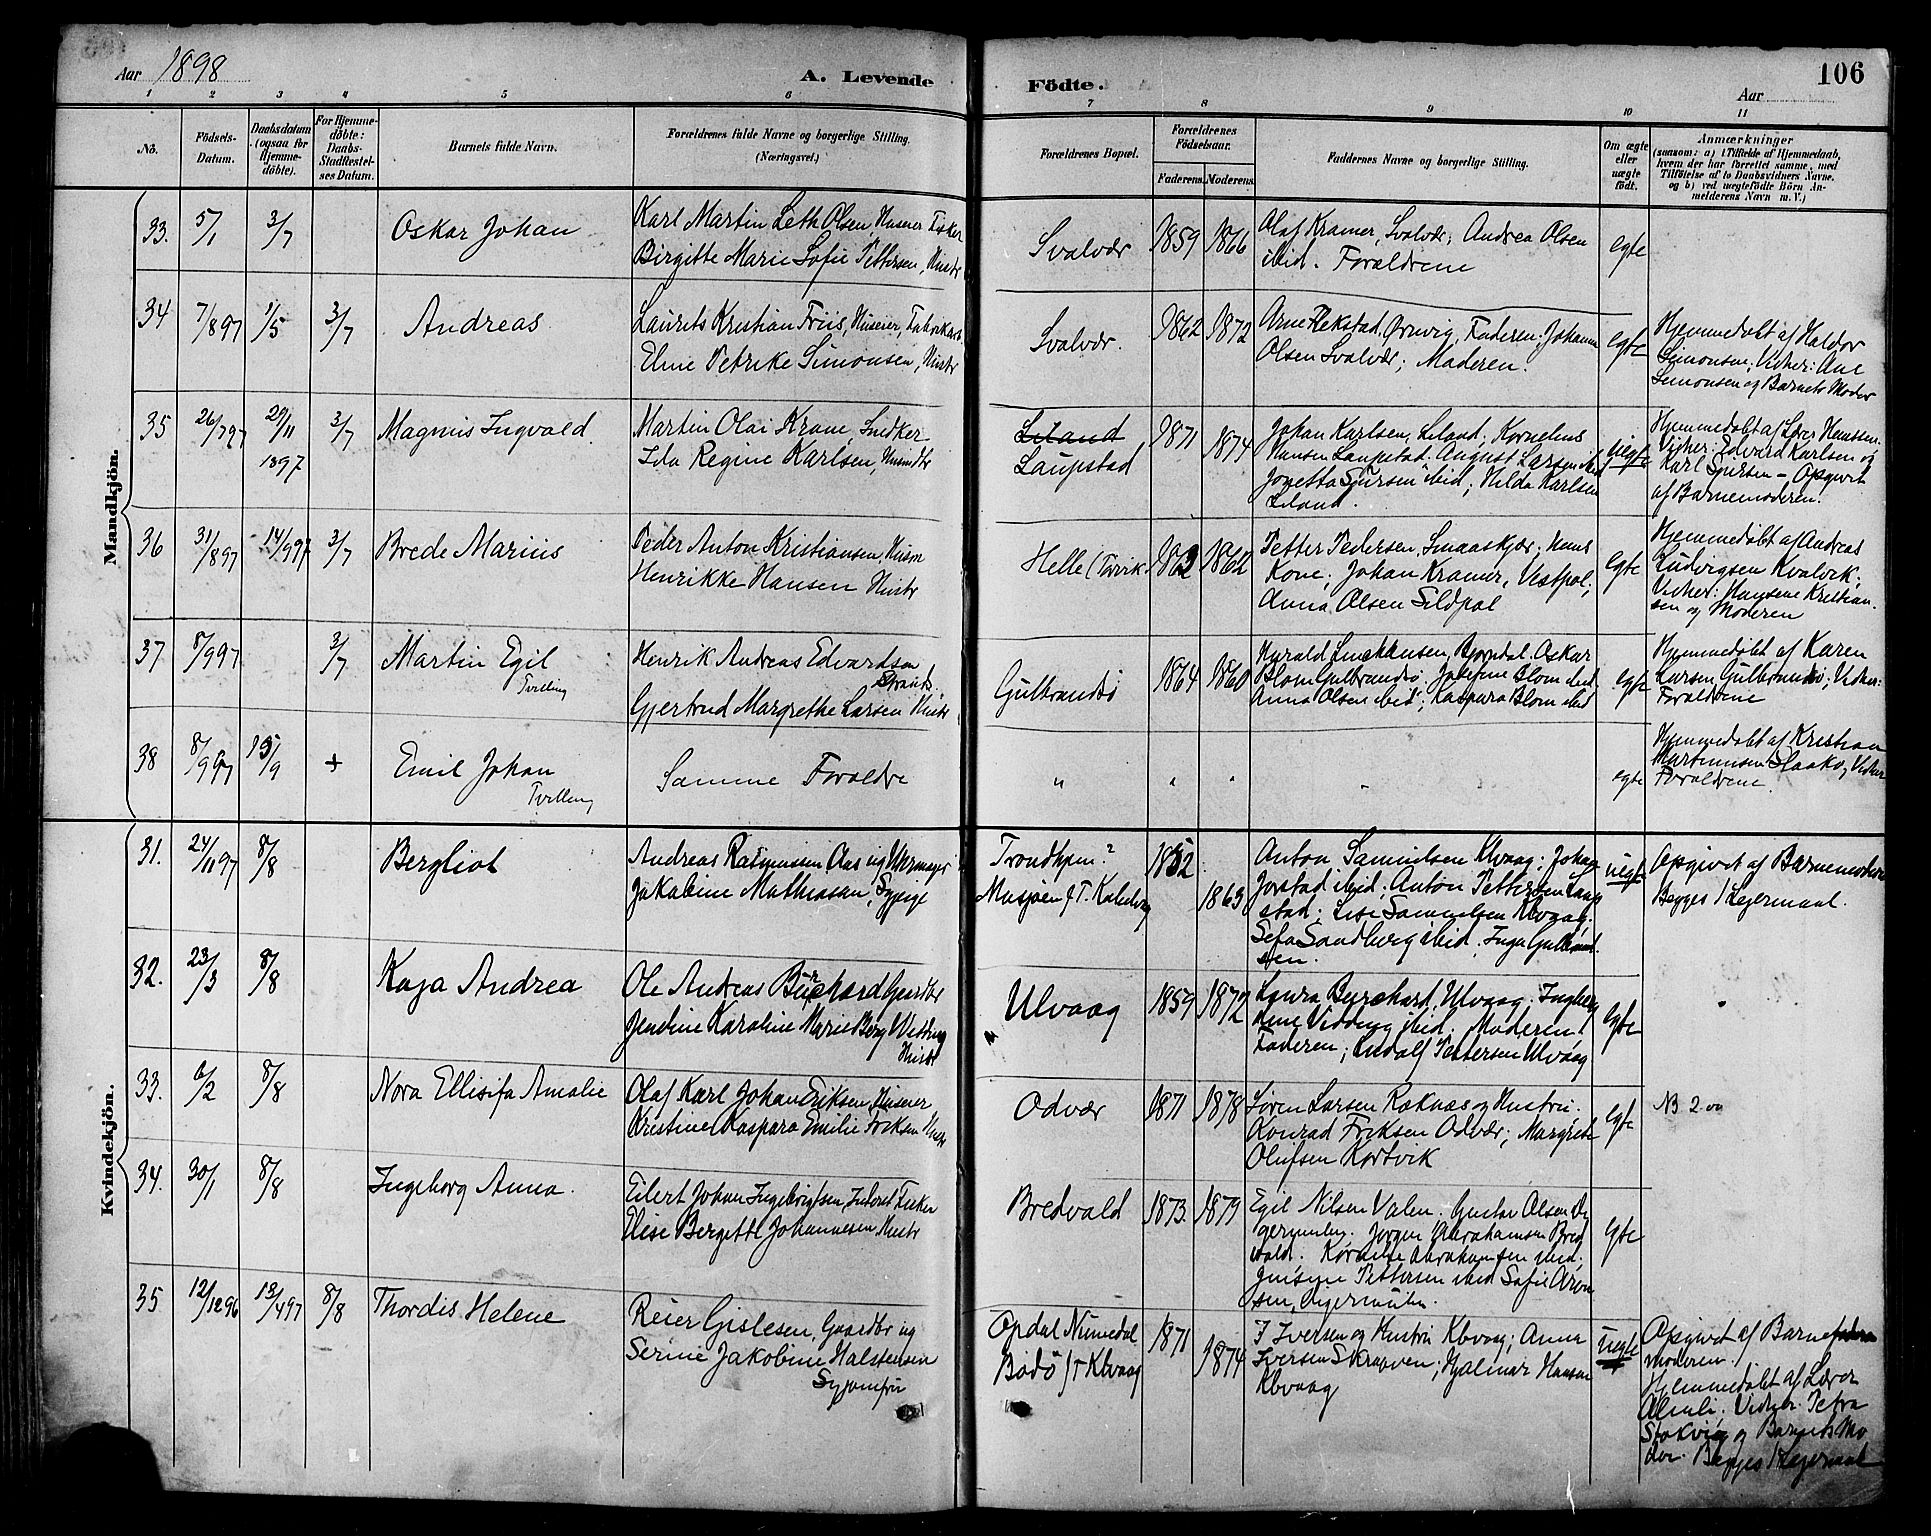 Aar 1898
A. Levende
Födte.
106
Aar
1 2 3 4 5 6 7 8 9 10 11
No.
Födsels-
Datum.
Daabsdatum
(ogsaa for
Hjemme-
döbte).
For Hjemme-
döbte:
Daabs-
Stadfæstel-
ses Datum.
Barnets fulde Navn.
Forældrenes fulde Navne og borgerlige Stilling.
(Næringsvei.)
Forældrenes Bopæl.
Forældrenes
Födselsaar.
Faderens. Moderens.
Faddernes Navne og borgerlige Stilling.
Om ægte
eller
uægte
födt.
Anmærkninger
(saasom: a) i Tilfælde af Hjemmedaab,
hvem der har forrettet samme, med
Tilföielse af to Daabsvidners Navne,
og b) ved uægtefödte Börn An-
melderens Navn m. V.)
Mandkjön.
33. 5/1 3/7 Oskar Johan
Karl Martin Leth Olsen, Huseier, Fisker
Birgitte Marie Sofie Pettersen, Hustr
Svalvær 1859 1866
Olaf Kramer, Svalvær; Andrea Olsen
ibid. Forældrene
egte
34 7/8 97 1/5 3/7 Andreas
Laurits Kristian Friis, Huseier,
Eline Petrike Simonsen, Hustr
Svalvær. 1862 1872
Arne Rekstad, Ørsvig, Faderen, Johanna
Olsen Svalvær; Moderen.
egte
Hjemmedøbt af Haldor
Simonsen, Vidner: Ane
Simonsen og Barnets Moder
35 26/7 97 29/11 1897 3/7 Magnus Ingvald.
Martin Olai Krane, Snedker
Ida Regine Karlsen,
Liland
Laupstad
1871 1874
Johan Karlsen, Liland; Kornelius
Hansen Laupstad. August Larsen ibid
Jonetta Sjursen ibid; Hilda Karlsen
Liland.
uegte
Hjemmedøbt af Lærer
Vidner: Edvard Karlsen og
Karl Sjursen – Opgivet
af Barnemoderen.
36 31/8 97 14/9 97 3/7 Brede Marius
Peder Anton Kristiansen, Husm
Henrikke Hansen Hustr
Helle (Torvik) 1862
Petter Pedersen, Smaaskjær; Hans
Kone; Johan Kramer, Vestpol;
Anna Olsen Sildpol
egte
Hjemmedøbt af Andreas
Ludvigsen Kvalvik;
Vidner: Hansine Kristian-
sen og Moderen
37 8/9 97 3/7 Martin Egil
Tvilling
Henrik Andreas Edvardsen
Gjertrud Margrethe Larsen Hustr
Gulbrandsø 1864 1860
Harald Bjørndal. Oskar
Blom Gulbrandsø; Josefine Blom ibid
Anna Olsen ibid; Kaspara Blom ibid
egte
Hjemmedøbt af Karen
Larsen Gulbrandsø; Vidner:
Forældrene
38 8/9 97 15/9 + Emil Johan
Tvilling
Samme Forældre
" " " "
egte
Hjemmedøbt af Kristian
Martinusen Vidner
Forældrene.
Kvindekjön.
31. 24/11 97 8/8 Bergliot
Andreas Rasmussen Aas og Uhrmager
Jakobine Mathiasen, Sypige
Trondhjem?
Mosjøen f. T.
1852 1863
Anton Samuelsen Kbvaag; Johan
Jorstad ibid; Anton Pettersen Laup-
stad; Lise Samuelsen Kbvaag.
Sefa Sandberg ibid. Inga
sen.
uegte
Opgivet af Barnemoderen
Begges 1 Lejermaal.
32. 23/3 8/8 Kaja Andrea
Ole Andreas Burchard Gaardbr
Jendine Karoline Marie Berg Wedding
Hustr
Ulvaag 1859 1872
Laura Burchard, Ulvaag.
ibid. Moderen
Faderen; Rudolf Pettersen Ulvaag
egte
33. 6/2 8/8 Nora Ellisifa Amalie
Olaf Karl Johan Eriksen, Huseier
Kristine Kaspara Emilie Eriksen Hustr
Odvær 1871 1878
Søren Larsen Raknæs og Hustru.
Konrad Eriksen Odvær; Margrete
Olufsen Kortvik
egte
NB 2
34. 30/1 8/8 Ingeborg Anna.
Eilert Johan Ingebrigtsen, Fisker
Elise Bergitte Johannesen Hustr
Bredvold 1873. 1879
Egil Nilsen Valen. Gustav Olsen Di-
germulen. Jørgen Abrahamsen Bred-
vold. Kornelie Abrahamsen ibid.
Pettersen ibid Sofie Aron-
sen, Digermulen.
egte
35 12/12 96 13/4 97 8/8 Thordis Helene
Reier Gislesen, Gaardbr og
Serine Jakobine Halstensen
Syjomfru
Opdal Numedal
Bodö f. T. Kbvaag
1871 1874
I Iversen og Hustru Kbvaag; Anna
Iversen Skraaven; Hjalmar Hansen
Kbvaag
uegte
Opgivet af Barne
moderen.
Hjemmedøbt af Lærer
Almli. Vidner. Petra
og Barnets Mo-
der. Begges 1 Lejermaal